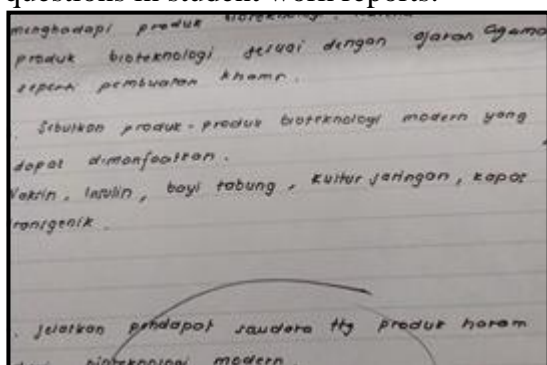 questions in student work reports.
menghadapi produk bioteknologi. karena
produk bioteknologi sesuai dengan ajaran Agama
seperti pembuatan khamr.
. Sebutkan produk-produk bioteknologi modern yang
dapat dimanfaatkan.
Vaksin, Insulin, bayi tabung, kultur jaringan, kapas
transgenik.
. Jelaskan pendapat saudara ttg produk haram
dari bioteknologi modern